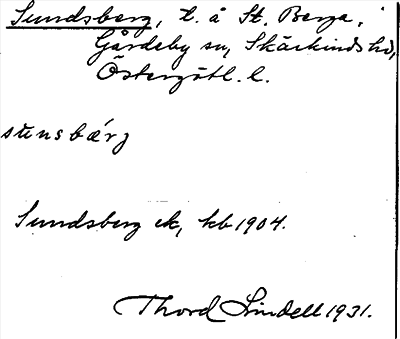 Sundsberg, t. å St. Berga,
Gårdeby sn, Skärkinds hd,
Östergötl. l.
sɯnsbærj
Sundsberg ek, kb 1904.
Thord Lindell 1931.